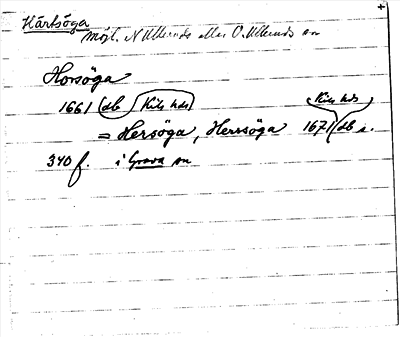 Kärtsöga +
möjl. N Ullerud eller Ö. Ullerud sn
Horsöga
1661 (db Kils hds) Kils hds
= Hersöga, Herrsöga 1671 (db s.
340 f. i Grava sn